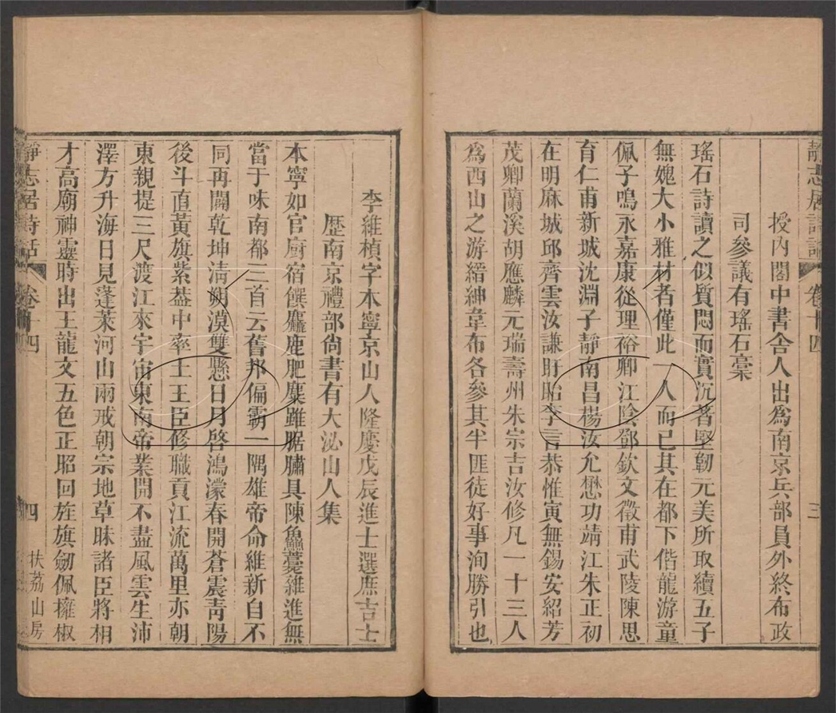 靜志居詩話 卷十四 三
授內閣中書舍人出爲南京兵部員外終布政
司參議有瑤石稾
瑤石詩讀之似質悶而實沉著堅韌元美所取續五子
無媿大小雅材者僅此一人而已其在都下偕龍游童
佩子鳴永嘉康從理裕卿江陰鄧欽文徵甫武陵陳思
育仁甫新城沈淵子靜南昌楊汝允懋功靖江朱正初
在明麻城邱齊雲汝謙盱眙李言恭惟寅無錫安紹芳
茂卿蘭溪胡應麟元瑞壽州朱宗吉汝修凡一十三人
爲西山之游縉紳韋布各參其半匪徒好事洵勝引也
李維楨字本寧京山人隆慶戊辰進士選庶吉士
歷南京禮部尙書有大泌山人集
本寧如官廚宿饌麤鹿肥麋雖腒鱐具陳鱻薧雜進無
當于味南都三首云舊邦偏霸一隅雄帝命維新自不
同再闢乾坤淸朔漠雙懸日月啓鴻濛春開蒼震靑陽
後斗直黃旗紫蓋中率土王臣修職貢江流萬里亦朝
東親提三尺渡江來宇宙東南帝業開不盡風雲生沛
澤方升海日見蓬萊河山兩戒朝宗地草昧諸臣將相
才高廟神靈時出王龍文五色正昭回旌旗劒佩擁椒
靜志居詩話 卷十四 四 扶荔山房